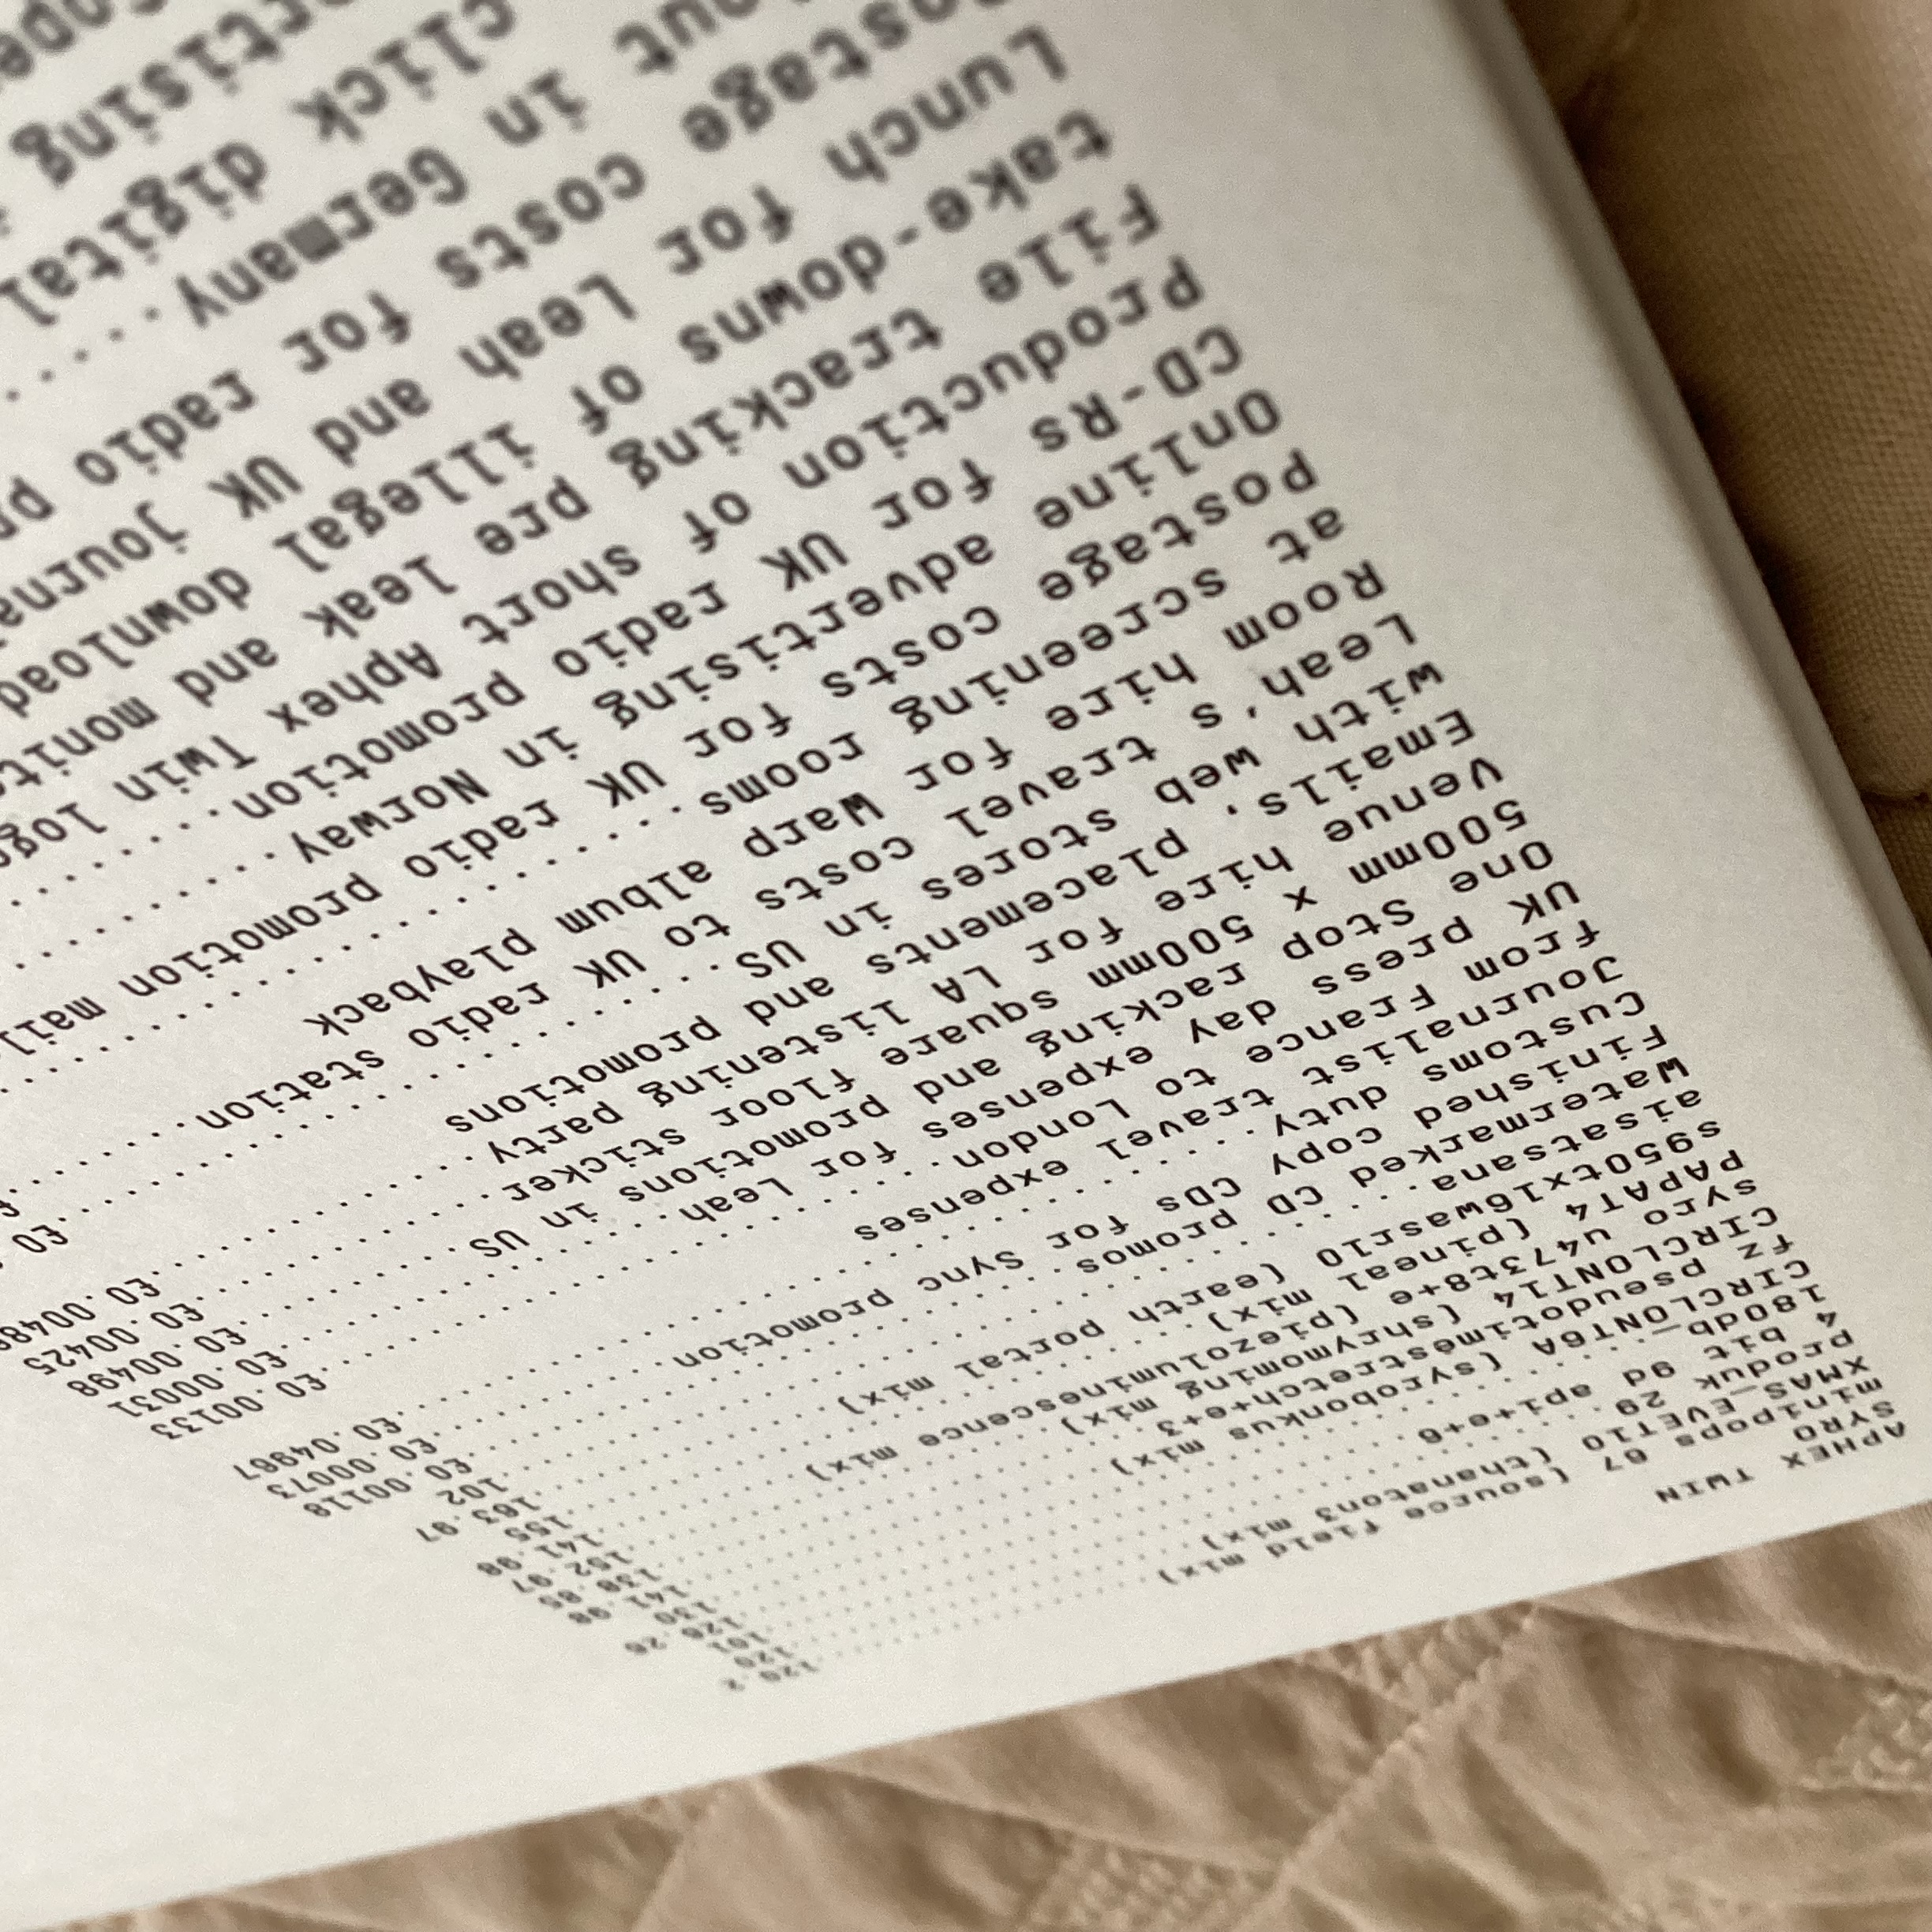 APHEX TWIN
SYRO
minipops 67 (source field mix)..........120.2
XMAS_EVET10 (thanaton3 mix)..........120
produk 29..........101
4 bit 9d api+e+6..........126.26
180db_..........130
CIRCLONT6A (syrobonkus mix)..........141.98
fz pseudotimestretch+e+3..........138.85
CIRCLONT14 (shrymoming mix)..........152.97
syro u473t8+e (piezoluminescence mix)..........141.98
PAPAT4 (pineal mix)..........155
s950tx16wasr10 (earth portal mix)..........163.97
aisatsana..........102
Watermarked CD promos..........£0.00118
Finished copy CDs for Sync promotion..........£0.00073
Customs duty..........£0.04967
Journalist travel expenses
from France to London..........£0.00133
UK press day expenses for Leah..........£0.00031
One Stop racking and promotions in US..........£0.00498
500mm x 500mm square floor sticker..........£0.00425
Venue hire for LA listening party..........£0.0048
Emails, placements and promotions
with web stores in US..........£0
Leah's travel costs to UK radio station..........£
Room hire for Warp album playback
at screening rooms..........
Postage costs for UK radio promotion mail
Online advertising in Norway..........
CD-Rs for UK radio promotion..........
Production of short Aphex Twin logo
File tracking pre leak and monit
take-downs of illegal download
Lunch for Leah and UK journa
Postage costs for radio pr
out in Germany.....
click digital
rtising